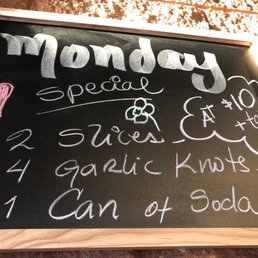 Monday
Special
At $10
2 Slices
4 Garlic Knots
1 Can of Soda